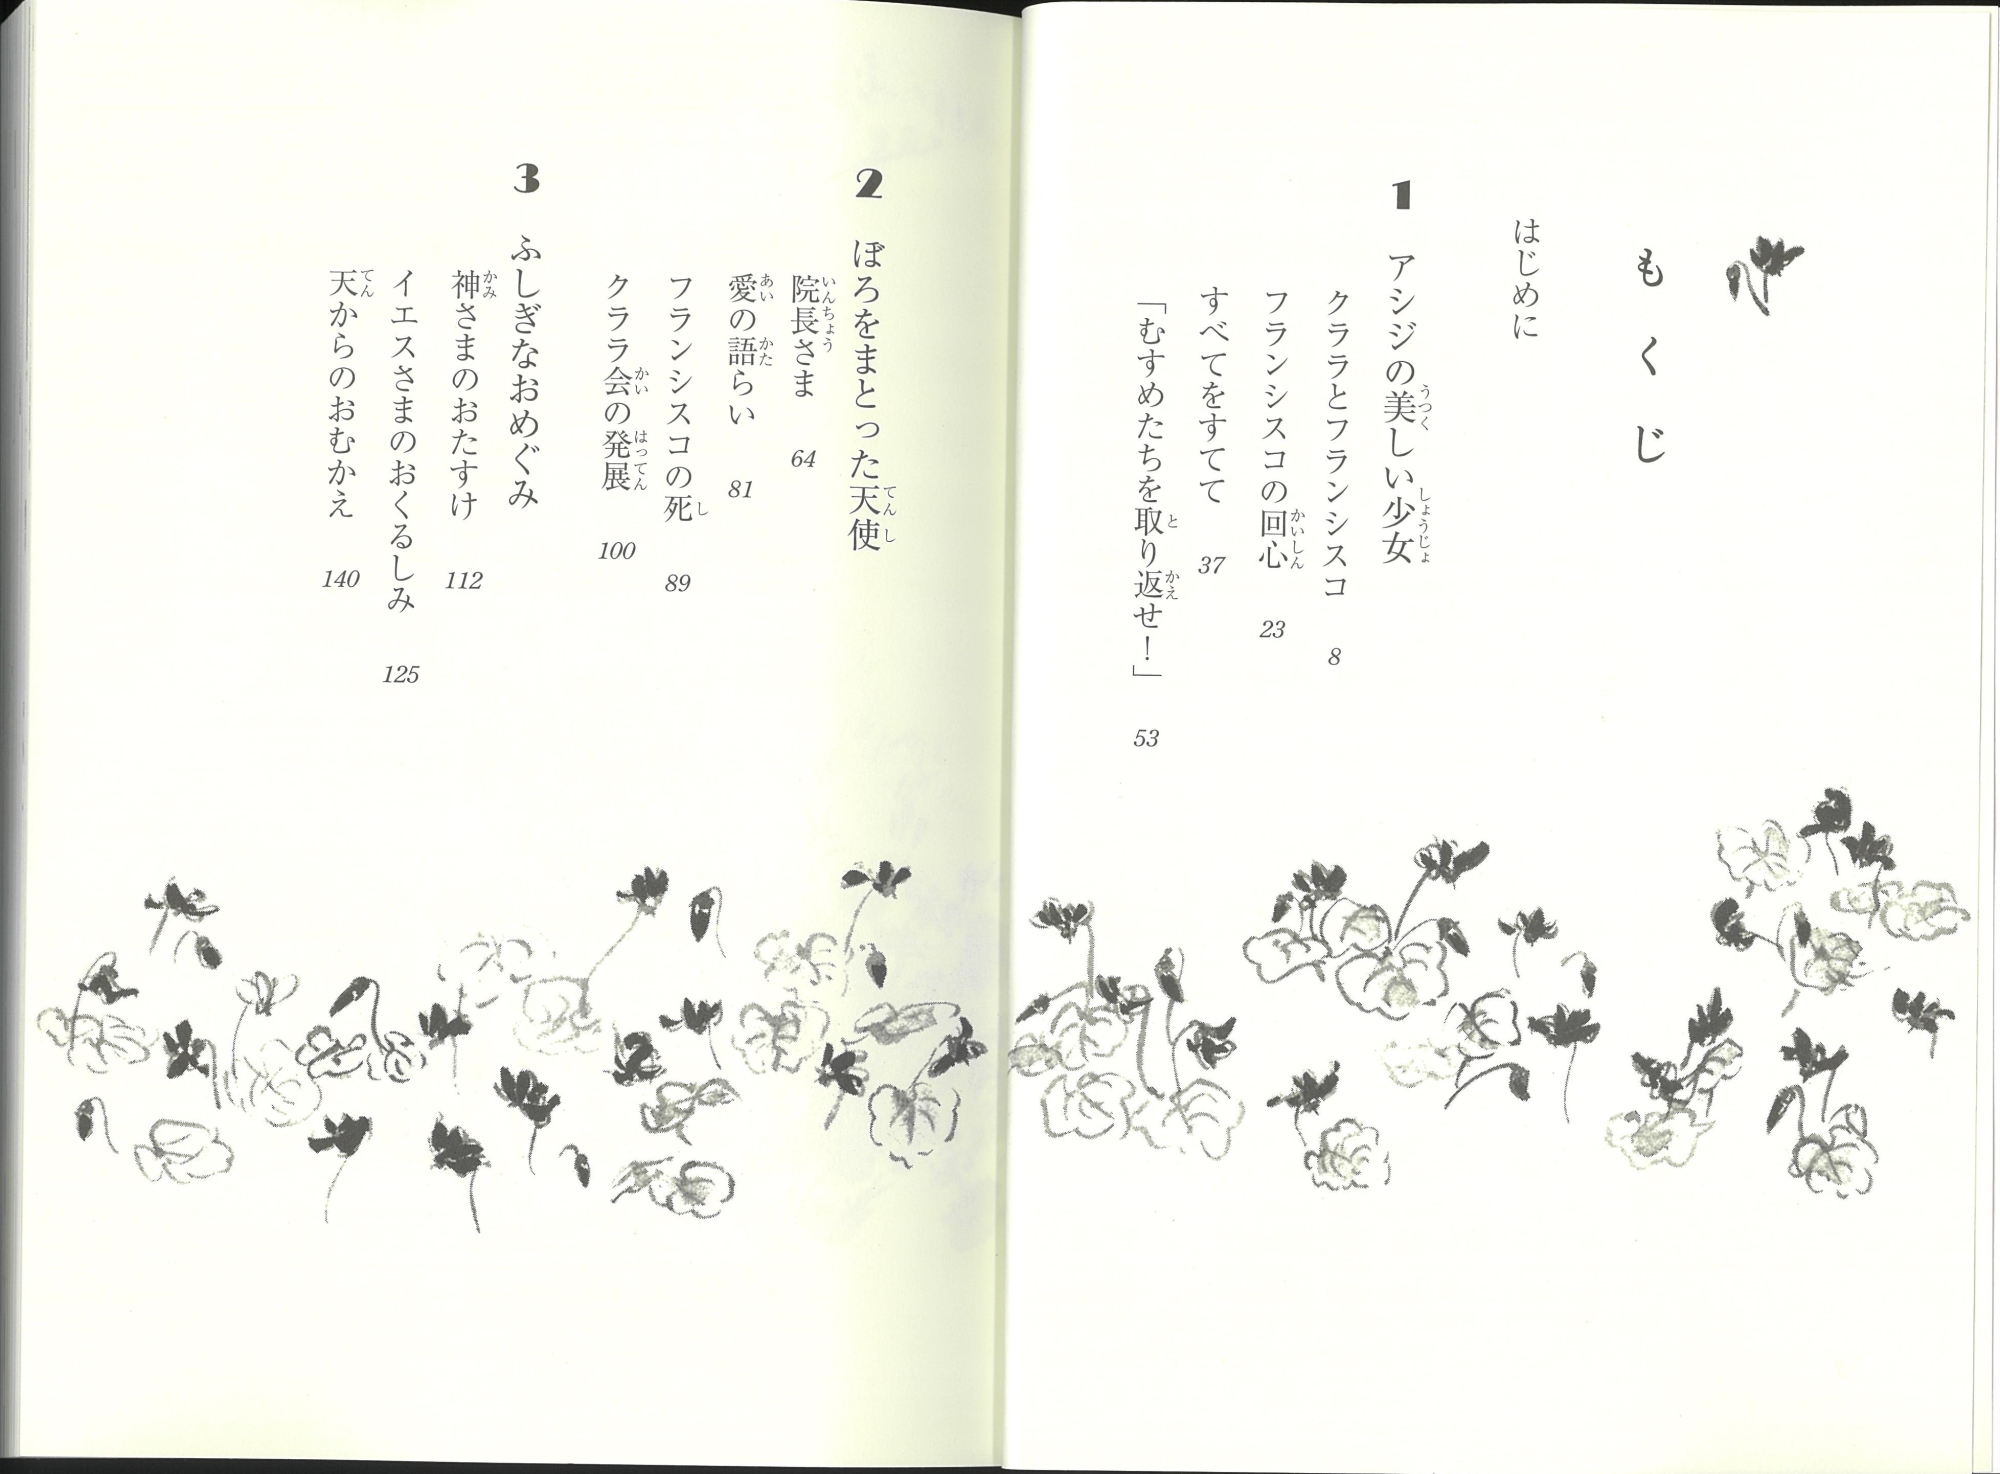 もくじ
はじめに
1 アシジの美しい少女
クララとフランシスコ 8
フランシスコの回心 23
すべてをすてて 37
「むすめたちを取り返せ！」 53
2 ぼろをまとった天使
院長さま 64
愛の語らい 81
フランシスコの死 89
クララ会の発展 100
3 ふしぎなおめぐみ
神さまのおたすけ 112
イエスさまのおくるしみ 125
天からのおむかえ 140